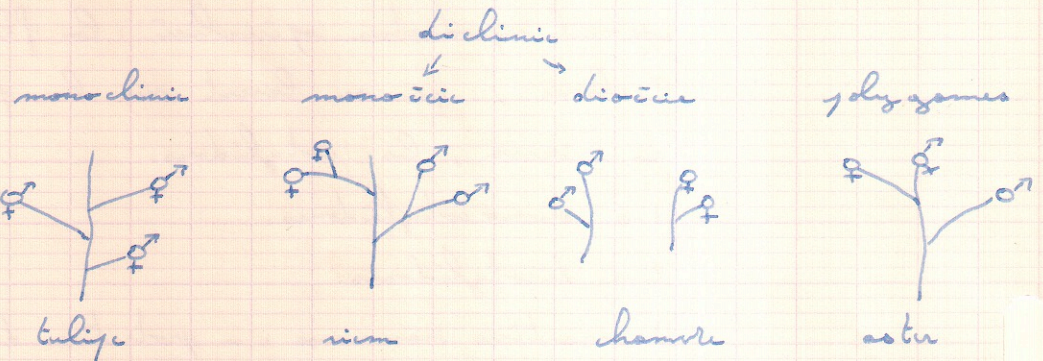 diclinie
monoclinie monoïcie dioïcie polygames
tulipe ricin chanvre aster